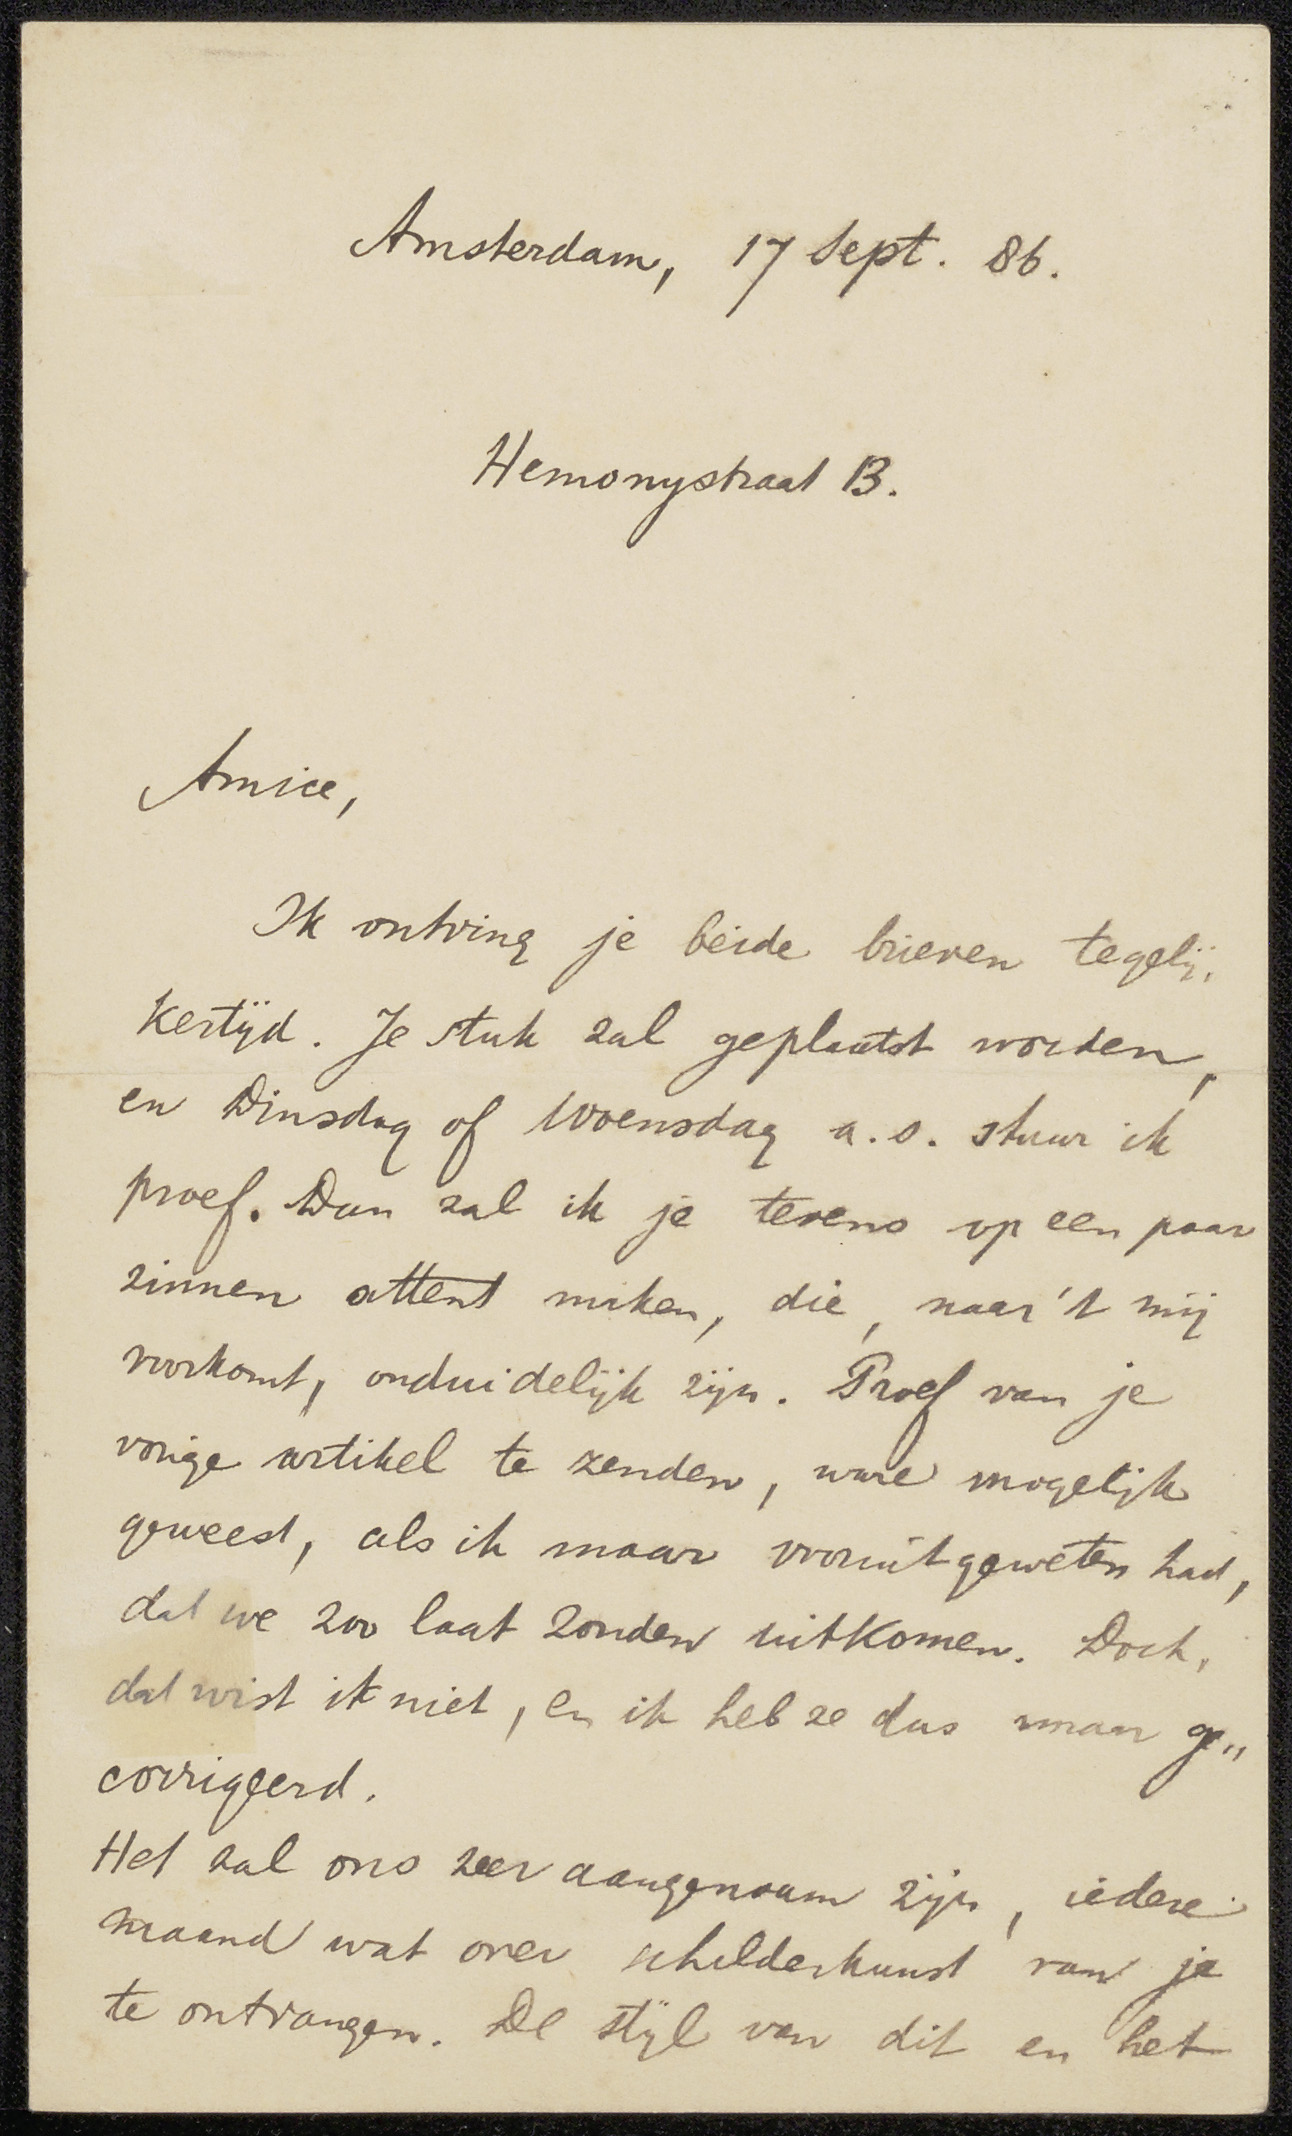 Amsterdam, 17 Sept. 86.
Hemonystraat 13.
Amice,
Ik ontving je beide brieven tegelij-
kertijd. Je stuk zal geplaatst worden,
en Dinsdag of Woensdag a.s. stuur ik
proef. Dan zal ik je tevens op een paar
zinnen attent maken, die, naar 't mij
voorkomt, onduidelijk zijn. Proef van je
vorige artikel te zenden, ware mogelijk
geweest, als ik maar vooruitgeweten had,
dat we zoo laat zouden uitkomen. Doch,
dat wist ik niet, en ik heb ze dus maar ge„
corrigeerd.
Het zal ons zeer aangenaam zijn, iedere
maand wat over schilderkunst van je
te ontvangen. De stijl van dit en het